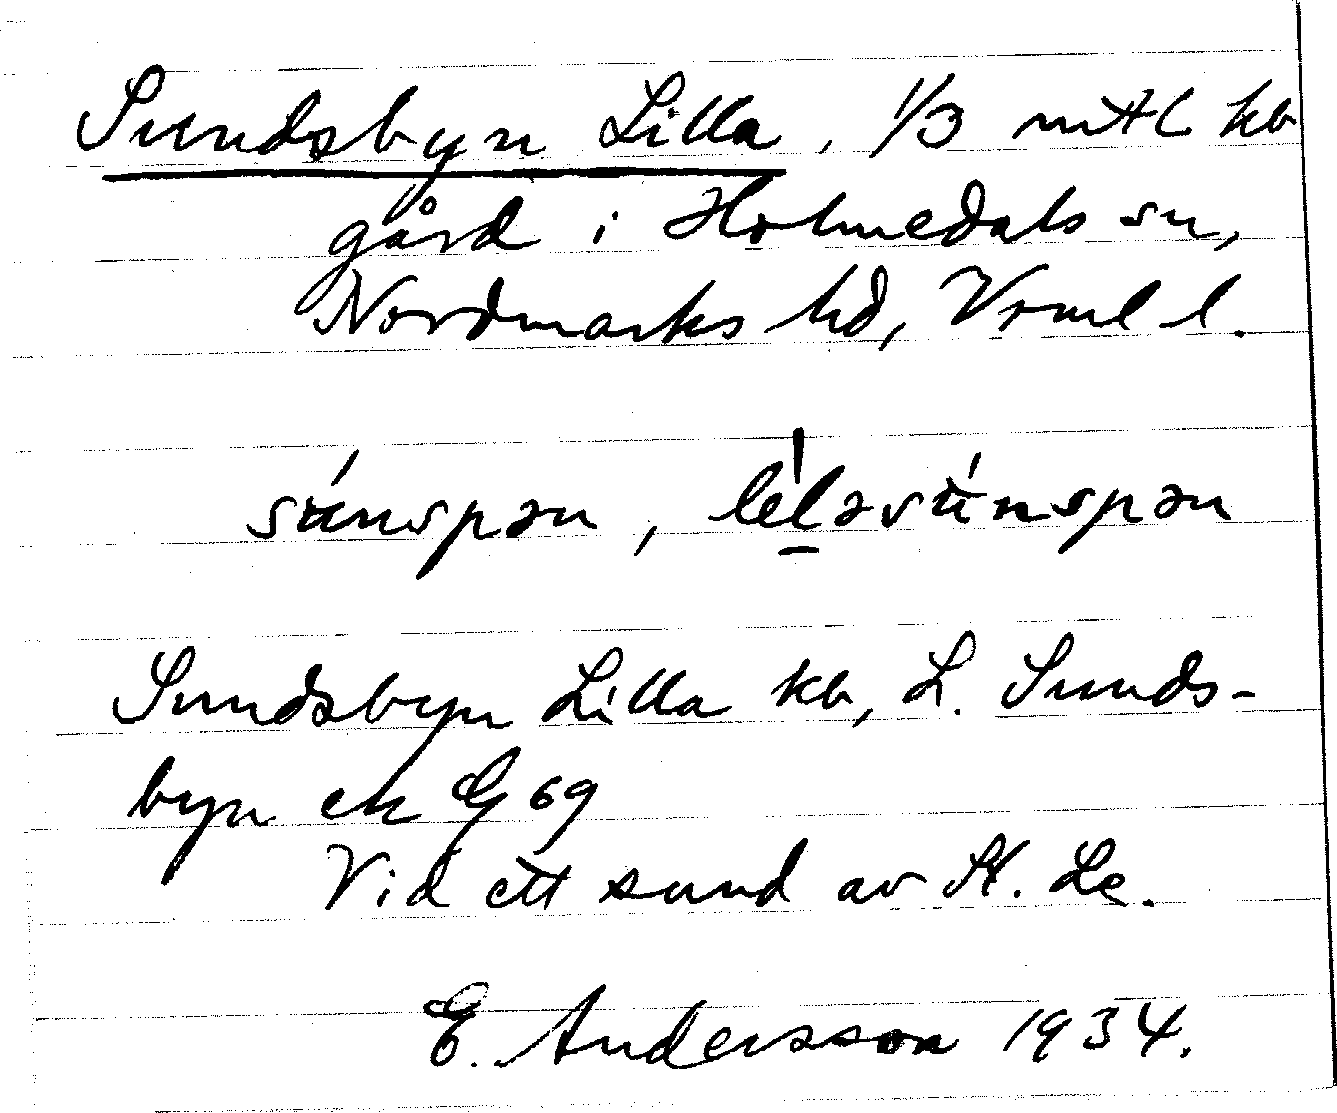 Sundsbyn Lilla, 1/3 mtl kb
gård i Holmedals sn,
Nordmarks hd, Vrml l.
súnspən, lélǝsúnspən
Sundsbyn Lilla kb, L. Sunds-
byn ek G 69
Vid ett sund av St. Le.
E. Andersson 1934.